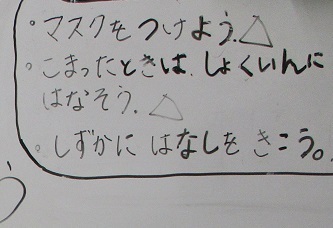 ・マスクをつけよう.△
・こまったときは、しょくいんに
はなそう.△
・しずかに はなしを きこう。